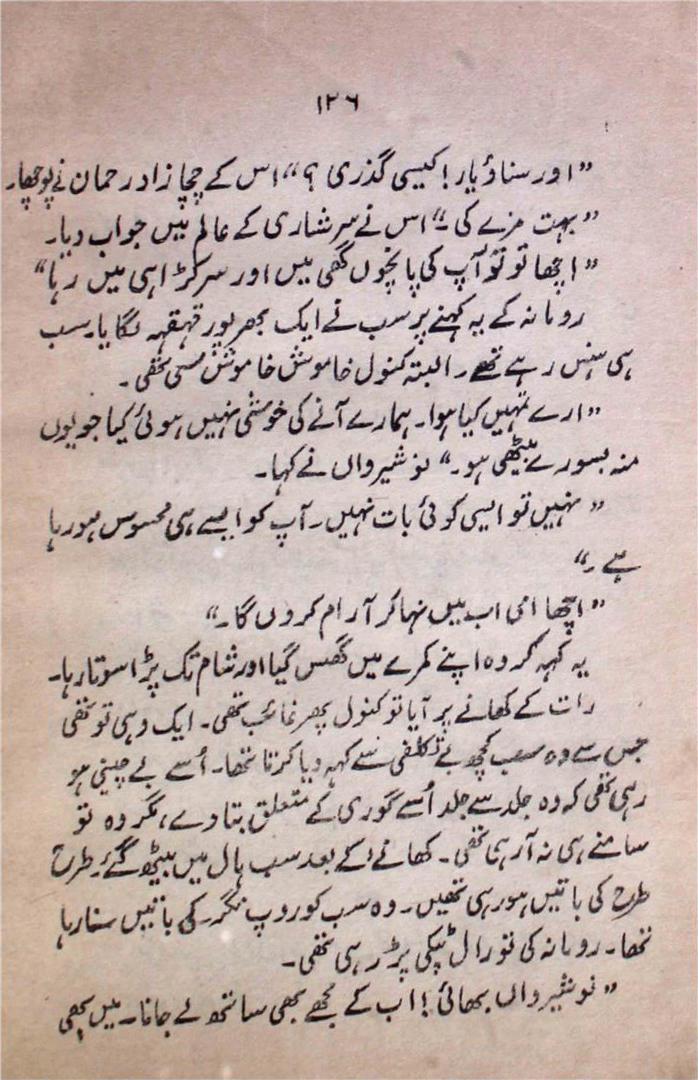 ۱۳۶
”اور سناؤ یار! کیسی گذری ؟“ اس کے چچا زاد رحمان نے پوچھا۔
”بہت مزے کی۔“ اس نے سرشاری کے عالم میں جواب دیا۔
”اچھا تو تو آپ کی پانچوں گھی میں اور سر کڑاہی میں رہا“
رومانہ کے یہ کہنے پر سب نے ایک بھرپور قہقہہ لگایا۔ سب
ہی ہنس رہے تھے۔ البتہ کنول خاموش خاموش سی تھی۔
”ارے تمہیں کیا ہوا۔ ہمارے آنے کی خوشی نہیں ہوئی کیا جو یوں
منہ بسورے بیٹھی ہو۔“ نوشیرواں نے کہا۔
”نہیں تو ایسی کوئی بات نہیں۔ آپ کو ایسے ہی محسوس ہو رہا
ہے۔“
”اچھا امی اب میں نہا کر آرام کروں گا۔“
یہ کہہ کر وہ اپنے کمرے میں گھس گیا اور شام تک پڑا سوتا رہا۔
رات کے کھانے پر آیا تو کنول پھر غائب تھی۔ ایک وہی تو تھی
جس سے وہ سب کچھ بے تکلفی سے کہہ دیا کرتا تھا۔ اُسے بے چینی ہو
رہی تھی کہ وہ جلد سے جلد اُسے گوری کے متعلق بتا دے، مگر وہ تو
سامنے ہی نہ آ رہی تھی۔ کھانے کے بعد سب ہال میں بیٹھ گئے۔ طرح
طرح کی باتیں ہو رہی تھیں۔ وہ سب کو روپ نگر کی باتیں سنا رہا
تھا۔ رومانہ کی تو رال ٹپکی پڑ رہی تھی۔
”نوشیرواں بھائی! اب کے مجھے بھی ساتھ لے جانا۔ میں بھی